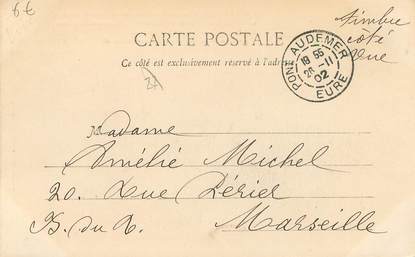 6€
timbre
côté
vue
CARTE POSTALE
Ce côté est exclusivement réservé à l'adresse
PONT-AUDEMER
18 55
26 -11
02
EURE
Madame
Amélie Michel
20. Rue Périer
B. du R. Marseille